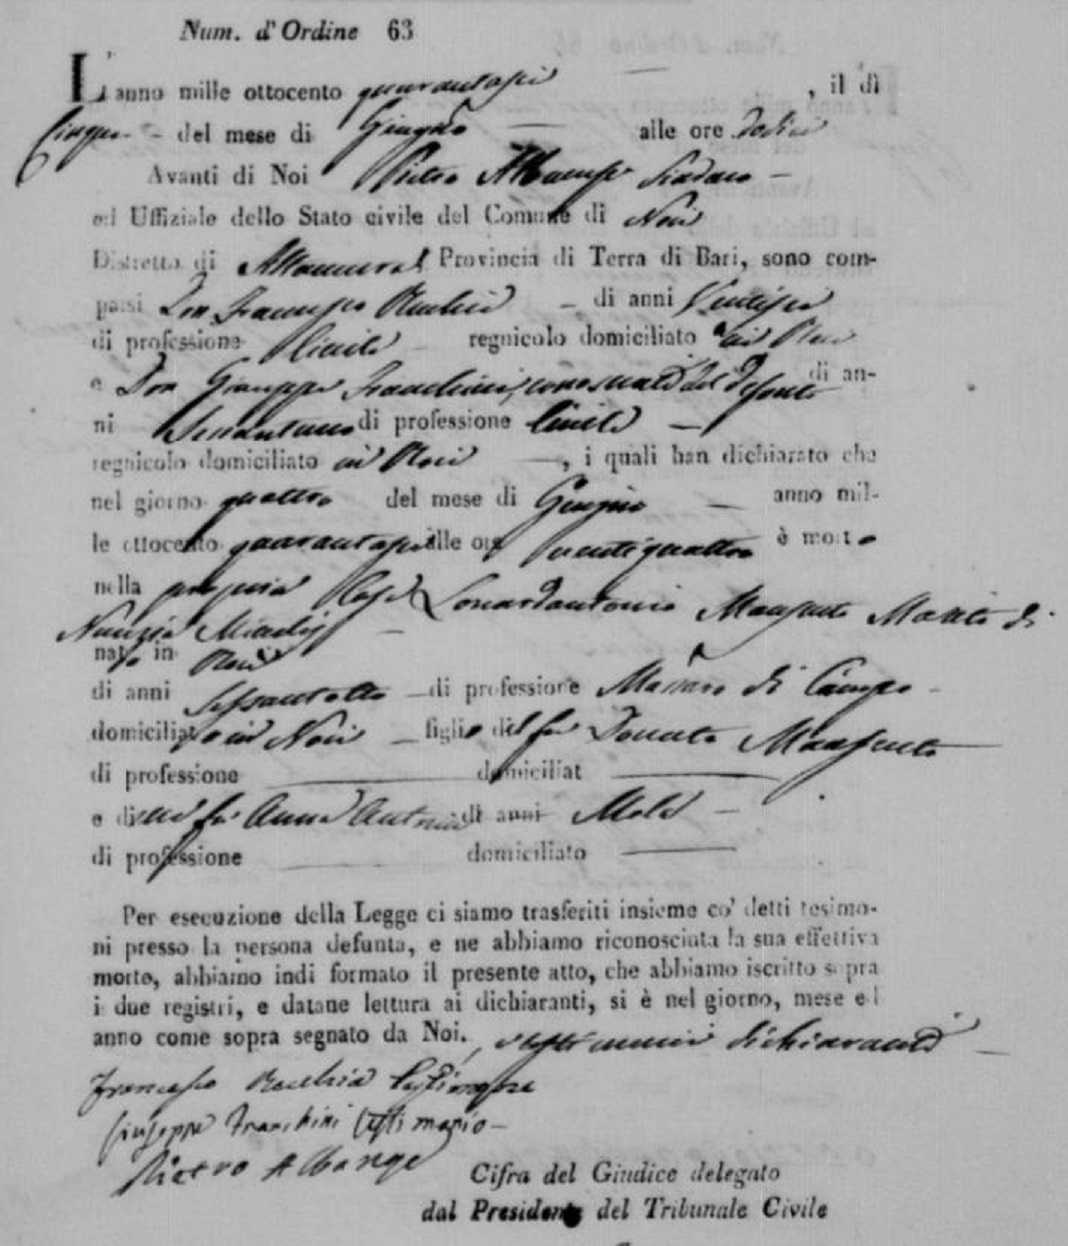 Num. d'Ordine 63
L'anno mille ottocento quarantasei , il dì
Cinque del mese di Giugno alle ore dodici
Avanti di Noi Pietro Albanese Sindaco
ed Uffiziale dello Stato civile del Comune di Noci
Distretto di Altamura Provincia di Terra di Bari, sono com-
parsi Don Francesco di anni Ventisei
di professione Civile regnicolo domiciliato in Noci
e Don Giuseppe di an-
ni di professione Civile
regnicolo domiciliato in Noci , i quali han dichiarato che
nel giorno quattro del mese di Giugno anno mil-
le ottocento quarantasei alle ore ventiquattro è morto
nella propria Casa Leonardantonio Mansueto Marito di
Nunzia
nato in Noci
di anni Sessantotto di professione Massaro di Campo
domiciliato in Noci figlio del fu Donato Mansueto
di professione domiciliat
e di fu Anna Antonia di anni
di professione domiciliato
Per esecuzione della Legge ci siamo trasferiti insieme co' detti tesimo-
ni presso la persona defunta, e ne abbiamo riconosciuta la sua effettiva
morte, abbiamo indi formato il presente atto, che abbiamo iscritto sopra
i due registri, e datane lettura ai dichiaranti, si è nel giorno, mese ed
anno come sopra segnato da Noi, dichiaranti
Francesco Testimone
Giuseppe Testimonio
Pietro Albanese
Cifra del Giudice delegato
dal Presidente del Tribunale Civile